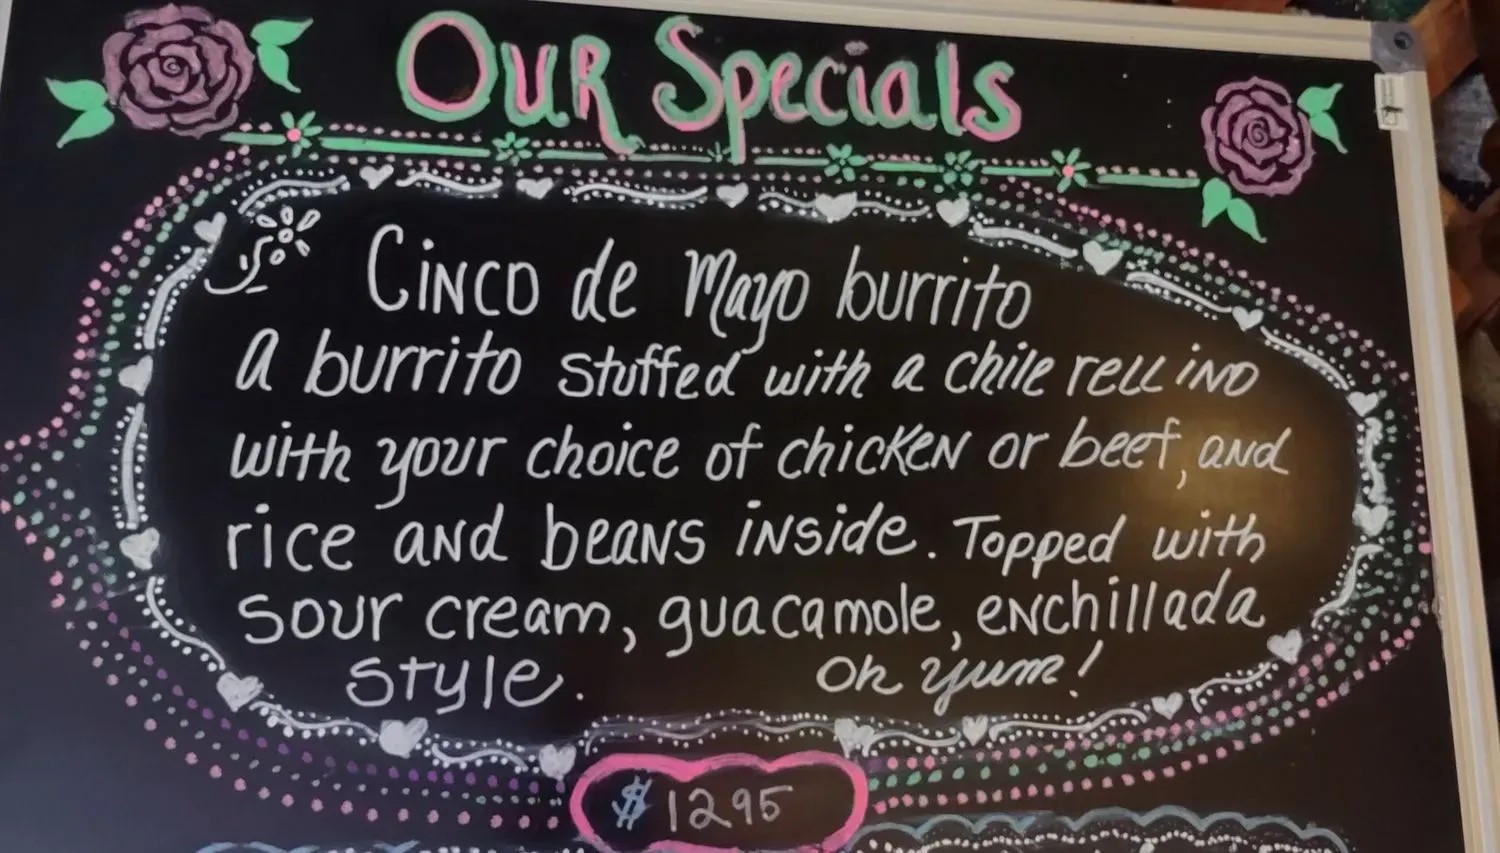 Our Specials
Cinco de Mayo burrito
A burrito stuffed with a chile rellino
with your choice of chicken or beef, and
rice and beans inside. Topped with
sour cream, guacamole, enchillada
style. Oh yum!
$1295